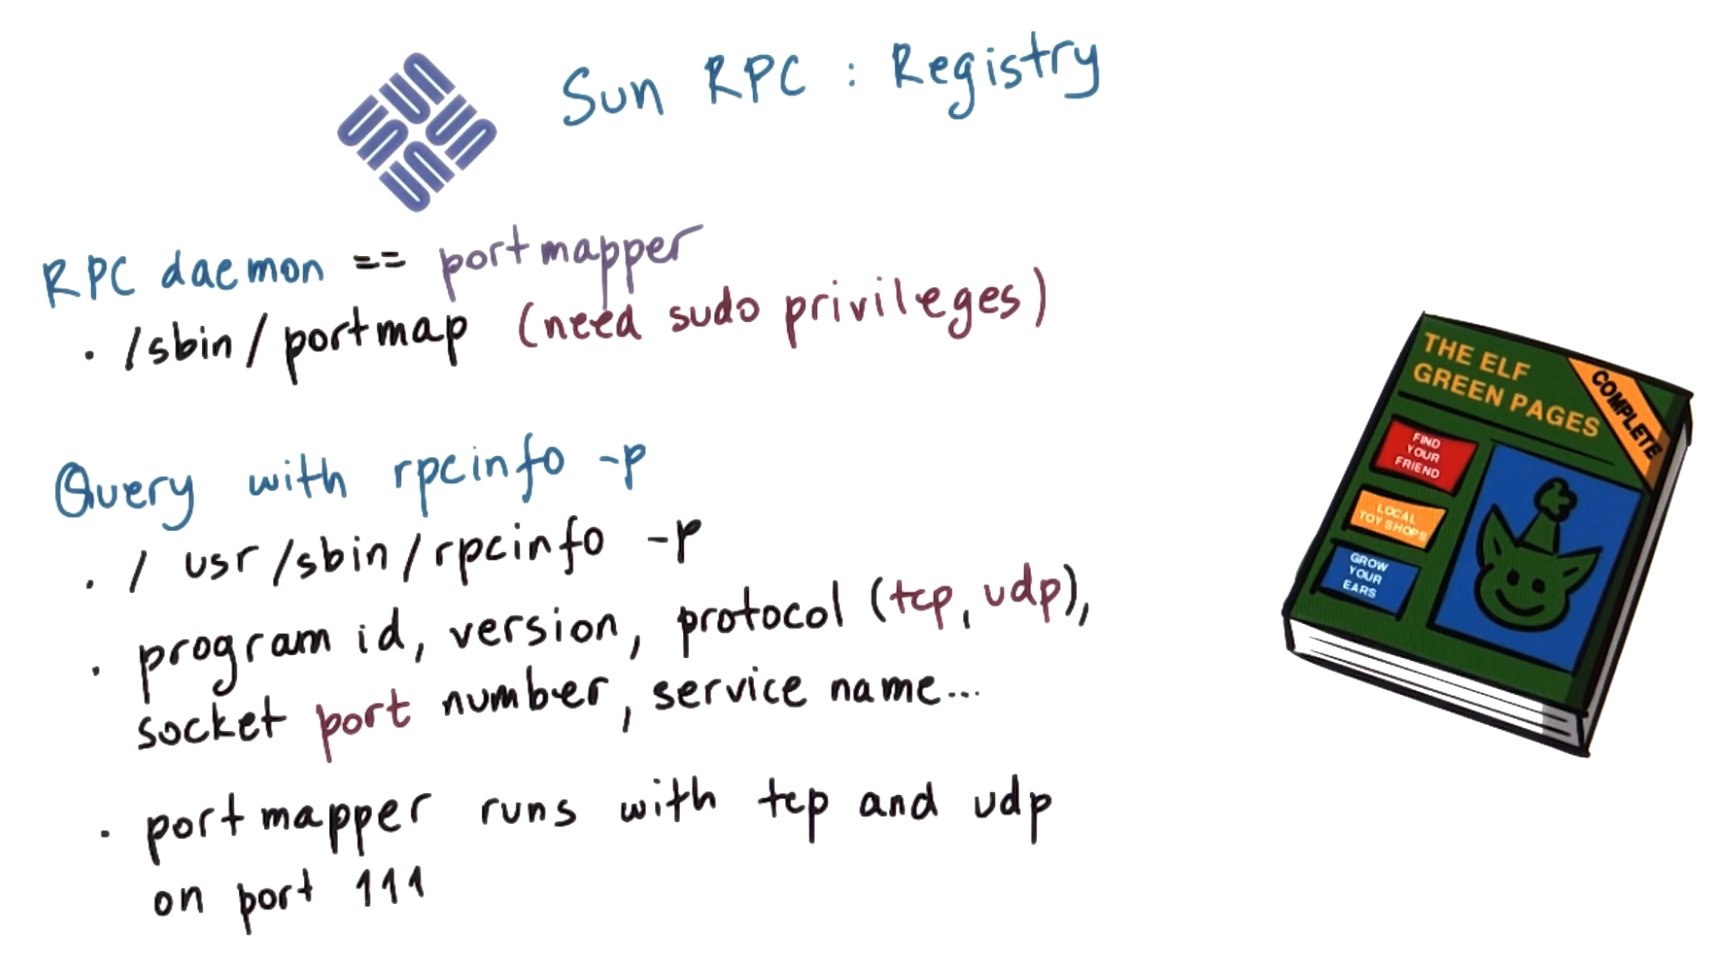 Sun RPC : Registry
RPC daemon == portmapper
. /sbin/portmap (need sudo privileges)
Query with rpcinfo -p
. / usr/sbin/rpcinfo -p
. program id, version, protocol (tcp, udp),
socket port number, service name...
. portmapper runs with tcp and udp
on port 111
THE ELF
GREEN PAGES
COMPLETE
FIND
YOUR
FRIEND
LOCAL
TOY SHOPS
GROW
YOUR
EARS
SUN
SUN
SUN
SUN